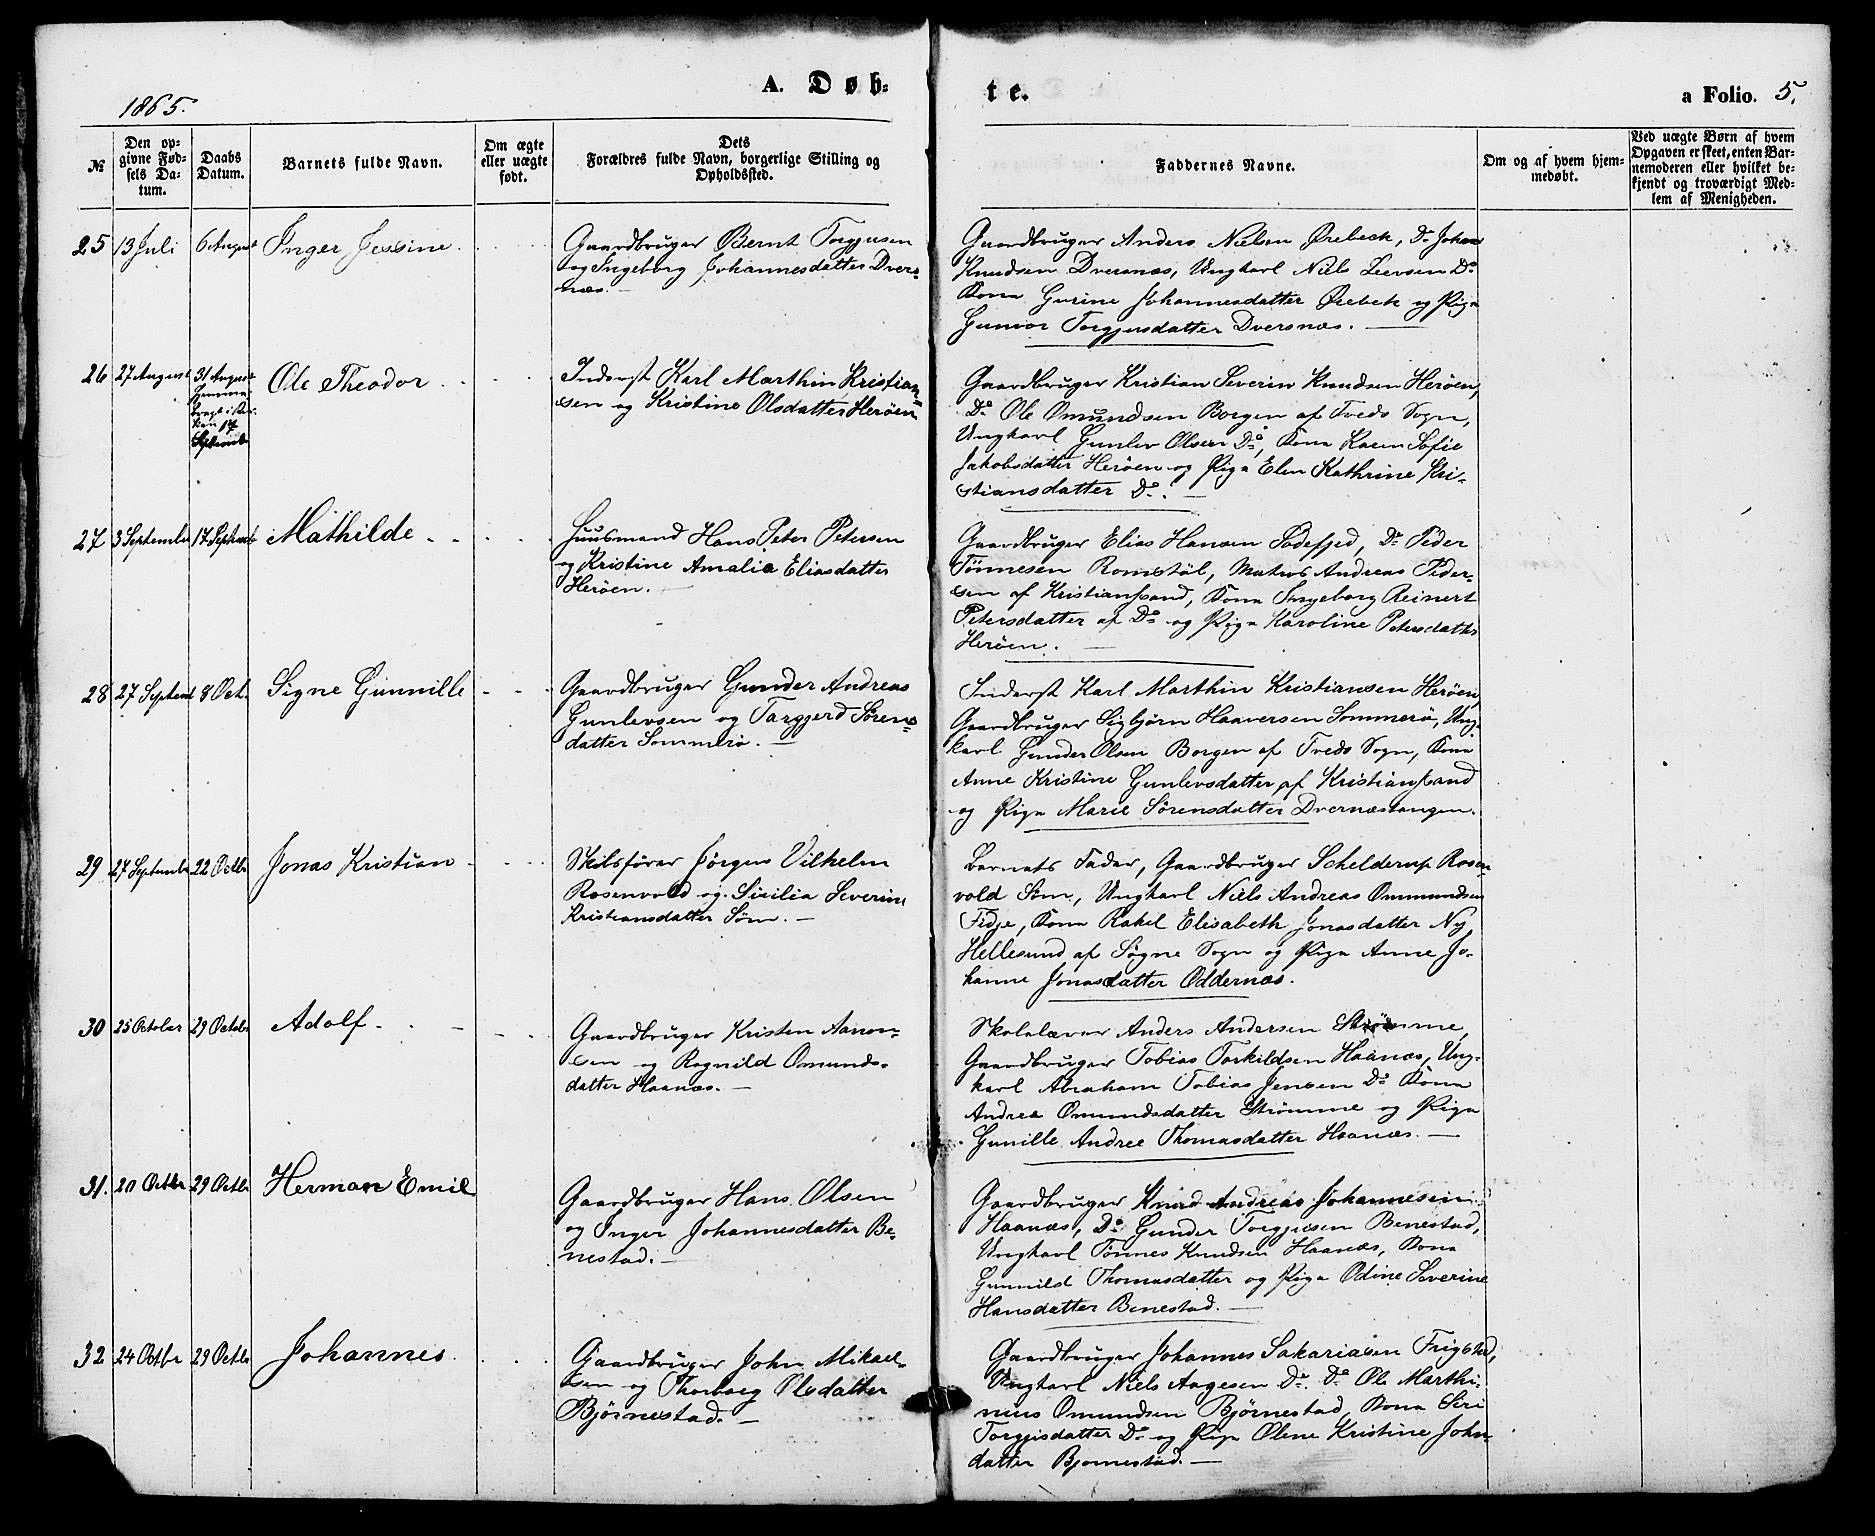 1865.
A. Døb-
te.
a Folio. 5.
№
Den op-
givne Fød-
sels Da-
tum.
Daabs
Datum.
Barnets fulde Navn.
Om ægte
eller uægte
født.
Dets
Forældres fulde Navn, borgerlige Stilling og
Opholdssted.
Faddernes Navne.
Om og af hvem hjem-
medøbt.
Ved uægte Børn af hvem
Opgaven er skeet, enten Bar-
nemoderen eller hvilket be-
kjendt og troværdigt Med-
lem af Menigheden.
25 13 Juli 6 August Inger Jessine
Gaardbruger Bernt Torgjusen
og Ingeborg Johannesdatter Dver-
næs.
Gaardbruger Anders Nielsen Ørebeck, Do Johan
Knudsen Dversnæs, Ungkarl Niels Leevsen Do
Kona Gurine Johannesdatter Ørebeck og Pige
Gunvor Torgjusdatter Dversnæs.
26 27 August 31 August
Hjemme
bragt i Kir-
ken 17
September
Ole Theodor
Inderst Karl Marthin Kristian-
sen og Kristine Olsdatter Herøen
Gaardbruger Kristian Severin Knudsen Herøen,
Do Ole Omundsen Borgen af Tveds Sogn,
Ungkarl Gunlev Olsen Do, Kona Karen Sofie
Jakobsdatter Herøen og Pige Elen Kathrine Kri-
stiansdatter Do.
27 3 September 17 Septemb Mathilde
Huusmand Hans Peter Petersen
og Kristine Amalia Eliasdatter
Herøen.
Gaardbruger Elias Hansen Sodefjed, Do Peder
Tønnesen Romstøl, Matros Andreas Peder-
sen af Kristianssand, Kona Ingeborg Reinert
Petersdatter af Do og Pige Karoline Petersdatter
Herøen.
28 27 Septemb 8 Oct. Signe Gunnille
Gaardbruger Gunder Andreas
Gunlevsen og Targjerd Sørens-
datter Sommerø.
Inderst Karl Marthin Kristiansen Herøen,
Gaardbruger Sigbjørn Haaversen Sommerø, Ung-
karl Gunder Olsen Borgen af Tveds Sogn, Kona
Anne Kristine Gunlevsdatter af Kristianssand
og Pige Marie Sørensdatter Dvernæstangen.
29 27 September 22 Octbr Jonas Kristian
Skibsfører Jørgen Vilhelm
Rosenvold og Sicilia Severine
Kristiansdatter Søm.
Barnets Fader, Gaardbruger Schelderup Rosen-
vold Søm, Ungkarl Niels Andreas Ommundsen
Fidje, Kona Rakel Elisabeth Jonasdatter Ny
Hellesund af Søgne Sogn og Pige Anne Jo-
hanne Jonasdatter Oddernæs.
30 25 October 29 Octobr Adolf
Gaardbruger Kristen Aanon-
sen og Ragnild Omunds-
datter Haanæs.
Skolelærer Anders Andersen Strømme,
Gaardbruger Tobias Torkildsen Haanæs, Ung-
karl Abraham Tobias Jensen Do Kona
Andrea Omundsdatter Strømme og Pige
Gunille Andree Thomasdatter Haanæs.
31. 20 Octbr 29 Octbr Herman Emil
Gaardbruger Hans Olsen
og Inger Johannesdatter Be-
nestad.
Gaardbruger Knud Andreas Johannesen
Haanæs, Do Gunder Torgjusen Benestad,
Ungkarl Tønnes Knudsen Haanæs, Kona
Gunnild Thomasdatter og Pige Odine Severine
Hansdatter Benestad.
32 24 Octbr 29 Octbr Johannes
Gaardbruger John Mikael-
sen og Thorborg Olsdatter
Bjørnestad.
Gaardbruger Johannes Sakariasen Frigstad,
Ungkarl Niels Aagesen Do. Do Ole Marthi-
nius Omundsen Bjørnestad, Kona Seri
Torgjisdatter Do og Pige Olene Kristine John-
datter Bjørnestad.